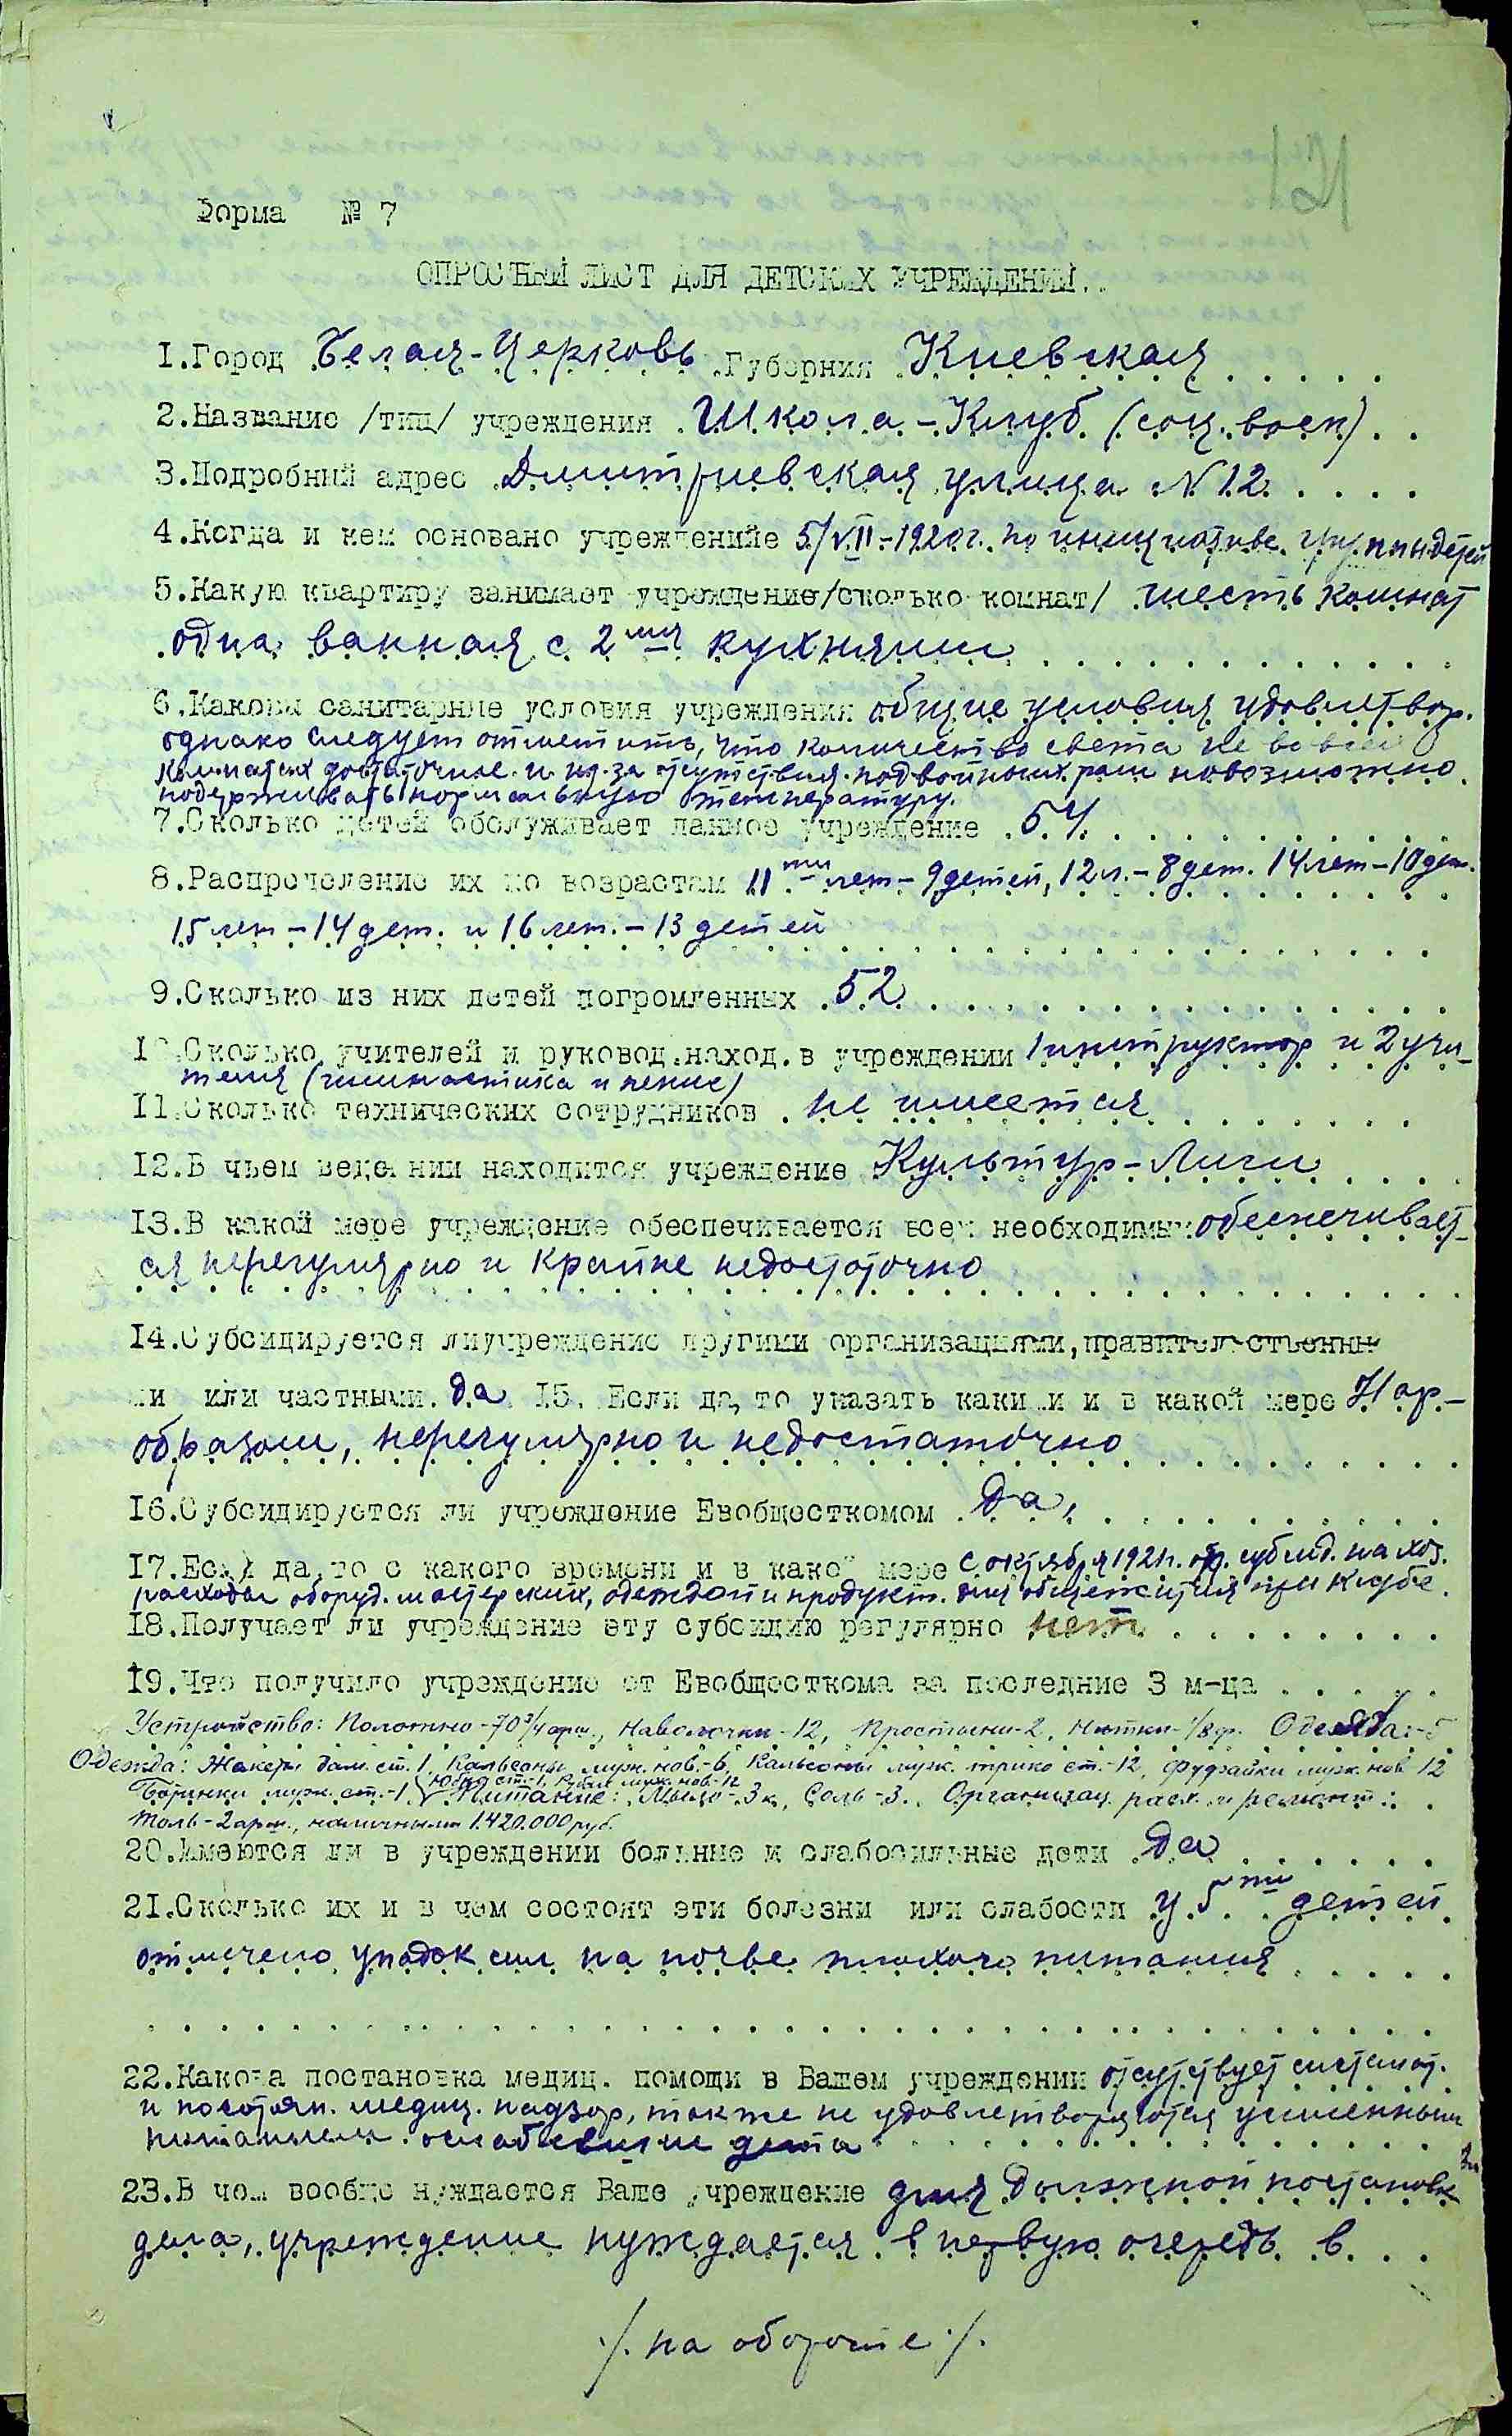 121
Форма № 7
ОПРОСНЫЙ ЛИСТ ДЛЯ ДЕТСКИХ УЧРЕЖДЕНИЙ.
1.Город Белая-Церковь Губерния Киевская
2.Название /тип/ учреждения Школа-Клуб (соц. восп)
3.Подробный адрес Дмитриевская улица № 12
4.Когда и кем основано учреждениие 5/VII-1920г. по инициативе группы детей
5.Какую квартиру занимает учреждение/сколько комнат/ шесть комнат
одна ванная с 2мя кухнями
6.Каковы санитарные условия учреждения общие условия удовлетвор.
однако следует отметить, что количество света не во всех
комнатах достаточное и из-за отсутствия подвойных рам невозможно
подерживать нормальную температуру.
7.Сколько детей обслуживает данное учреждение 54
8.Распределение их по возрастам 11ти лет-9 детей, 12 л.-8 дет. 14 лет-10 дет.
15 лет-14 дет. и 16 лет.-13 детей
9.Сколько из них детей погромленных 52
10.Сколько учителей и руковод.наход.в учреждении 1 инструктор и 2 учи-
теля (гимнастика и пение)
11.Сколько технических сотрудников не имеется
12.В чьем ведении находится учреждение Культур-Лиги
13.В какой мере учреждение обеспечивается всем необходимым обеспечивает-
ся нерегулярно и крайне недостаточно
14.Субсидируется лиучреждение другими организациями,правительственны
ми или частными. да 15. Если да,то указать какими и в какой мере Нар-
образом, нерегулярно и недостаточно
16.Субсидируется ли учреждение Евобщесткомом да,
17.Если да,то с какого времени и в какой мере с октября 1921г. субсид. на хоз.
расходы оборуд. мастерских, одеждой и продукт. для общежития при клубе.
18.Получает ли учреждение эту субсидию регулярно нет
19.Что получило учреждение от Евобщесткома за последние 3 м-ца
Устройство: Полотно-70 3/4 арш., Наволочки-12, Простыни-2, Нитки-1/8 гр.
Одежда: Жакеты дам. ст. 1, Кальсоны муж. нов.-6, Кальсоны муж. трико ст.-12, Фуфайки муж. нов 12
Ботинки муж. ст.-1 Юбка ст.-1, муж. нов.-12 Питание: Мыло-3 к, Соль-3. Организац. расх. и ремонт:
Толь-2 арш., наличными 1.420.000 руб.
20.Имеются ли в учреждении больные и слабосильные дети да
21.Сколько их и в чем состоят эти болезни или слабости у 5ти детей
отмечено упадок сил на почве плохого питания
22.Какова постановка медиц. помощи в Вашем учреждении отсутствует системат.
и постоян. медиц. надзор, также не удовлетворяются усиленным
питанием ослабевшие дети
23.В чем вообще нуждается Ваше учреждение для должной постановки
дела, учреждение нуждается в первую очередь в
./. на обороте ./.